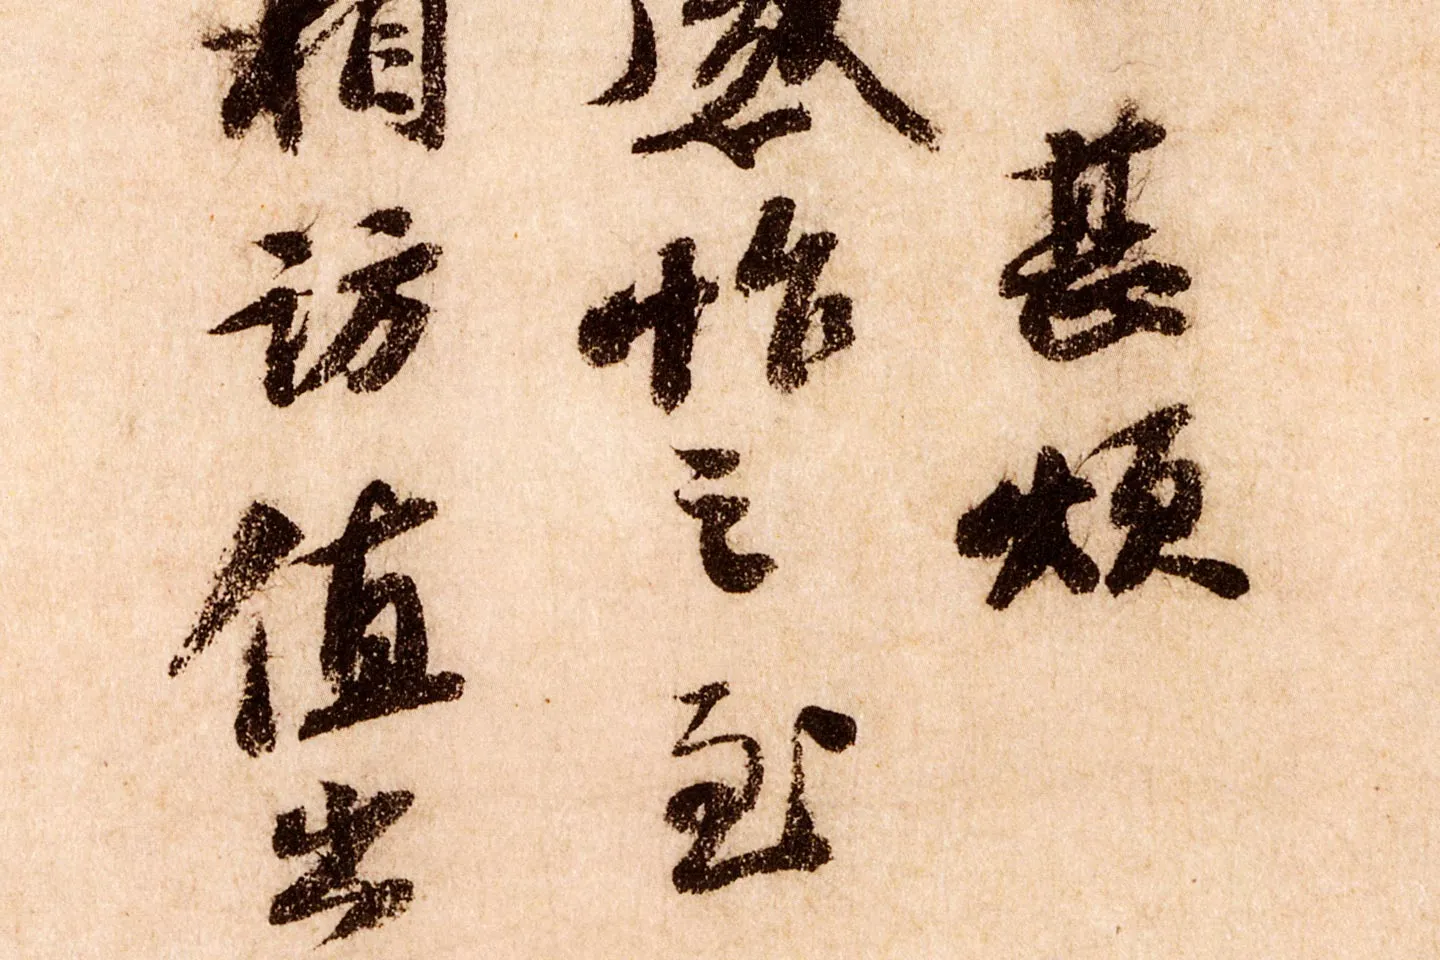 甚煩
感怍之至
相訪值出